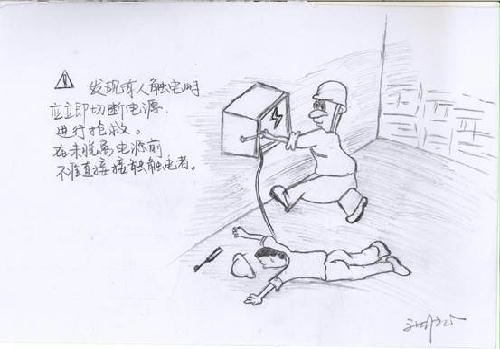 发现有人触电时
应立即切断电源
进行抢救。
在未脱离电源前
不准直接接触触电者。